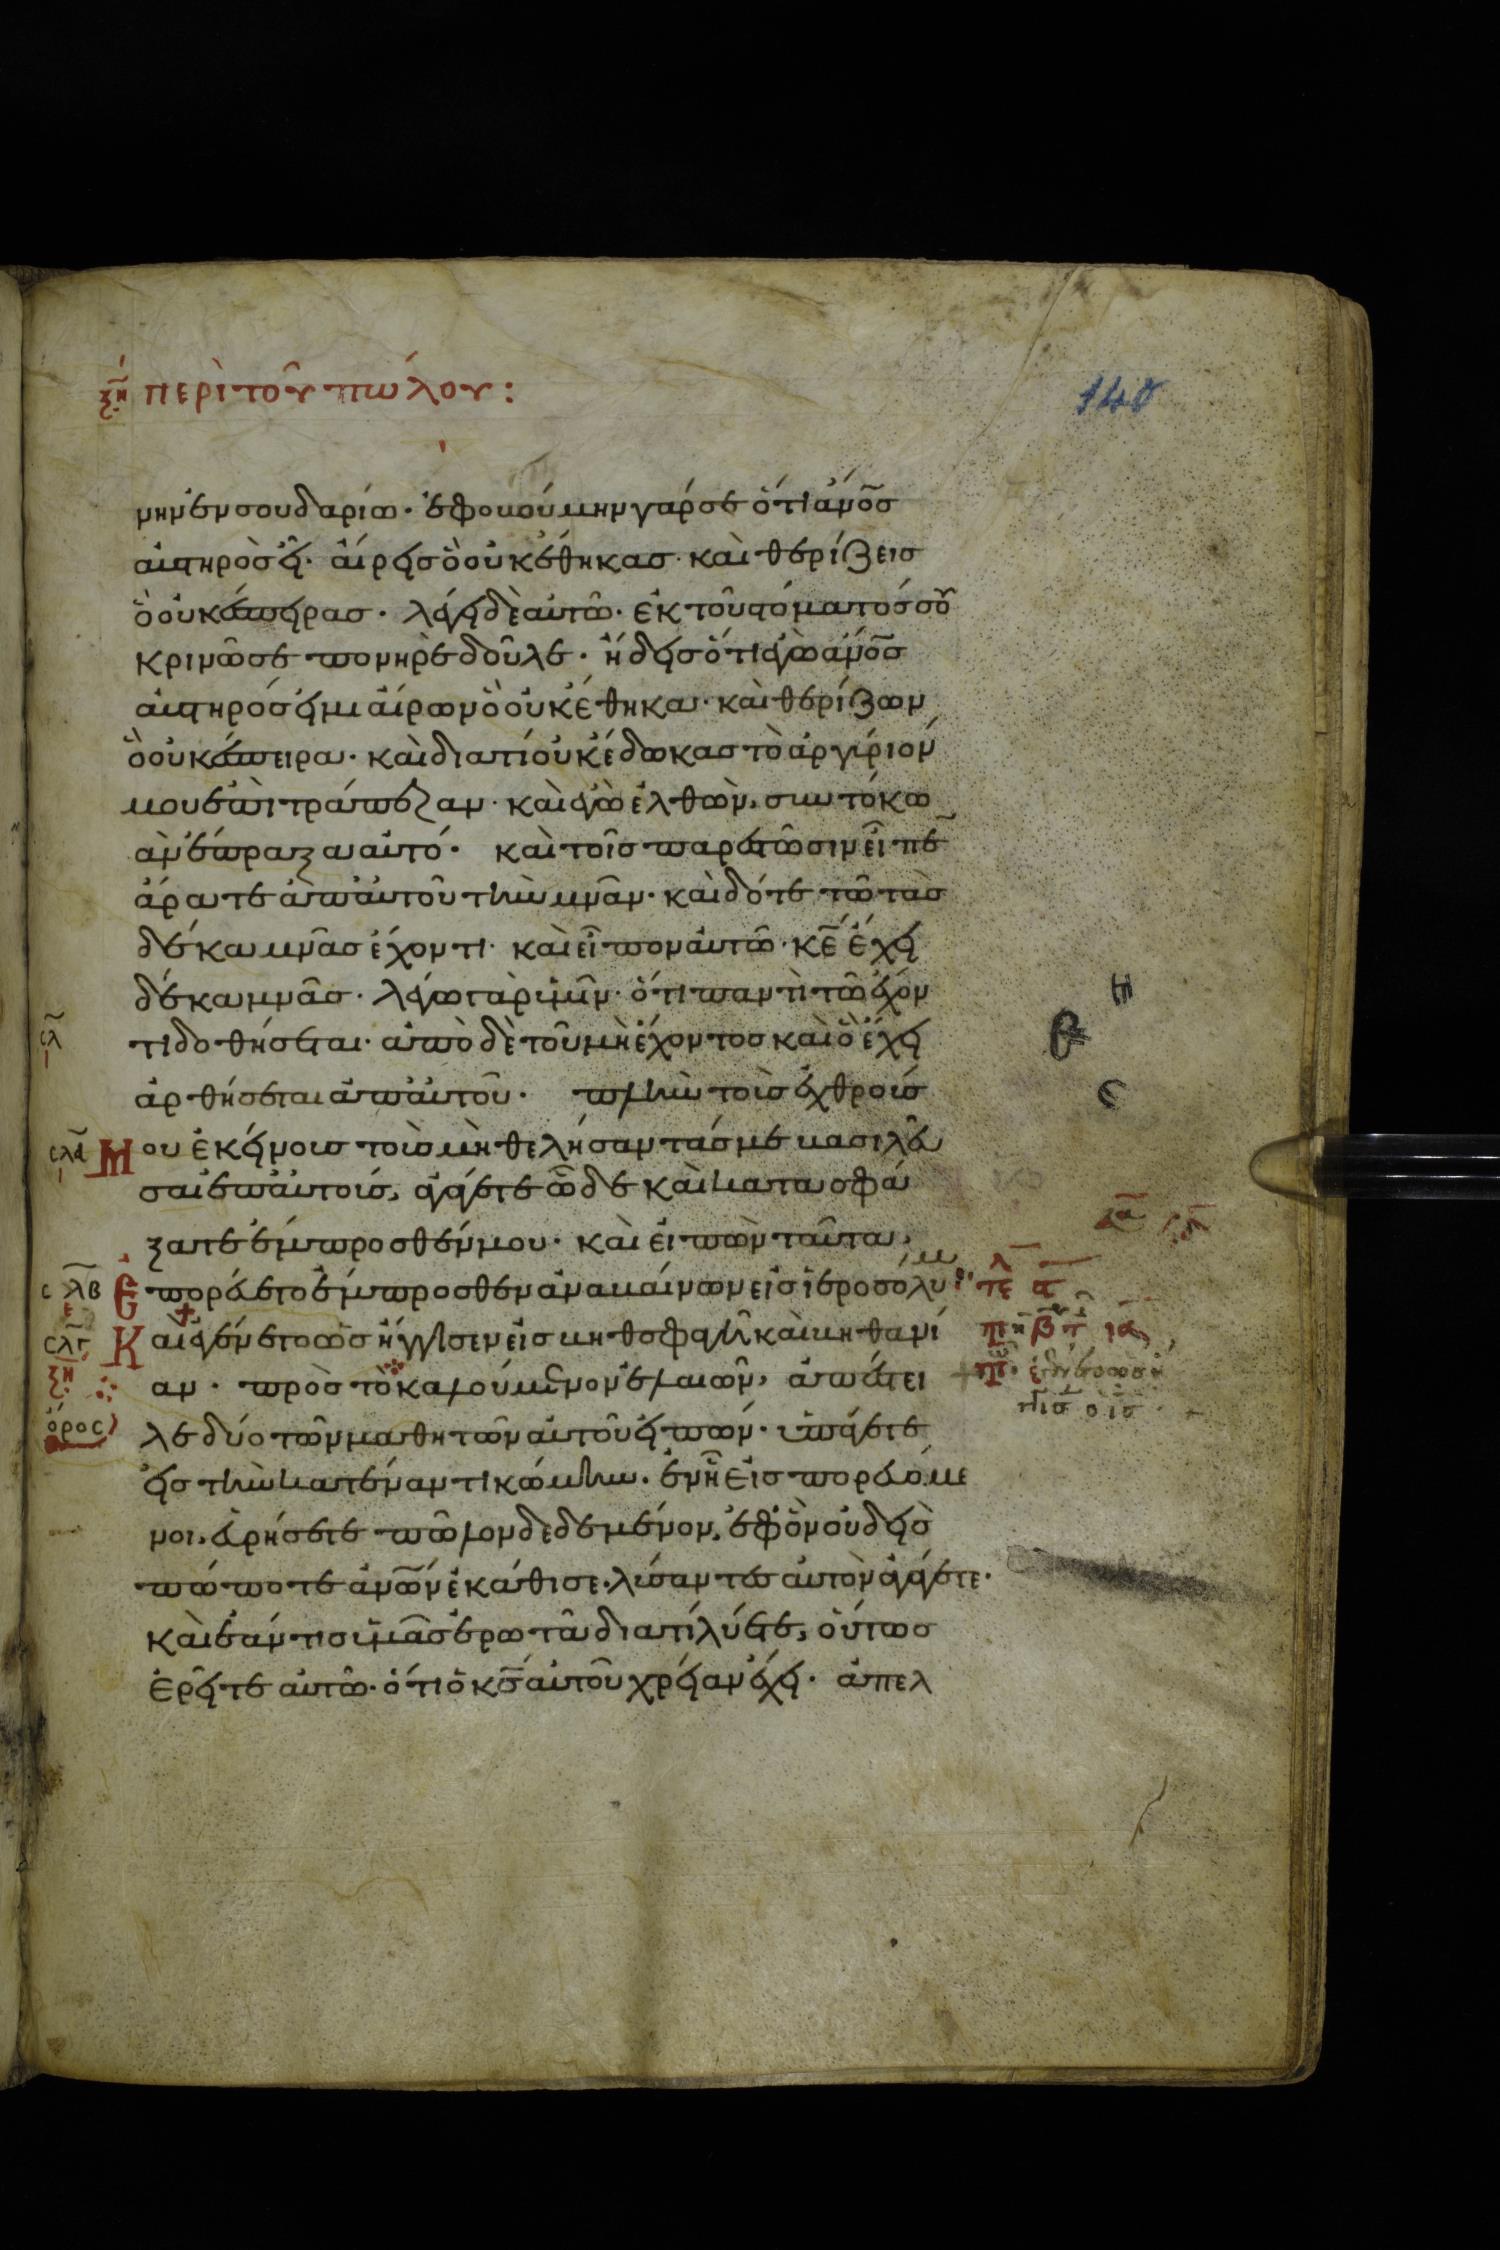 ξη περὶ τοῦ πώλου:
140
μην ἐν σουδαρίω· ἐφοβούμην γάρ σε ὅτι ἀνο̅σ
αὐστηρὸσ εἶ· αἴρεισ ὃ οὐκ ἔθηκασ· καὶ θερίζεισ
ὃ οὐκ ἔσπειρασ· λέγει δὲ αὐτῶ· ἐκ τοῦ στόματόσ σου
κρινῶ σε πονηρὲ δοῦλε· ἤδεισ ὅτι ἐγὼ ἀνο̅σ
αὐστηρόσ εἰμι αἴρων ὃ οὐκ ἔθηκα· καὶ θερίζων
ὃ οὐκ ἔσπειρα· καὶ διατί οὐκ ἔδωκασ τὸ ἀργύριόν
μου ἐπὶ τράπεζαν· καὶ ἐγὼ ἐλθὼν, σὺν τόκω
ἂν ἔπραξα αὐτό· καὶ τοῖσ παρεστῶσιν εἶπε
ἄρατε ἀπ' αὐτοῦ τὴν μνᾶν· καὶ δότε τῶ τὰσ
δέκα μνᾶσ ἔχοντι· καὶ εἶπον αὐτῶ· κε̅ ἔχει
δέκα μνᾶσ· λέγω γὰρ ὑμῖν· ὅτι παντὶ τῶ ἔχον
σλ τι δοθήσεται· ἀπὸ δὲ τοῦ μὴ ἔχοντοσ καὶ ὃ ἔχει
ἀρθήσεται ἀπ' αὐτοῦ· πλὴν τοὺσ ἐχθρούσ
σλα Μου ἐκείνουσ τοὺσ μὴ θελήσαντάσ με βασιλεῦ
σαι ἐπ' αὐτούσ, ἀγάγετε ὧδε καὶ κατασφά
ξατε ἔμπροσθέν μου· καὶ εἰπὼν ταῦτα,
σλβ Ἐπορεύετο ἔμπροσθεν ἀναβαίνων εἰσ ἱεροσόλυμ τελ
σλγ Καὶ ἐγένετο ὡσ ἤγγισεν εἰσ βηθσφαγῆ καὶ βηθανί
ξη αν· πρὸσ τὸ καλούμενον ἐλαιῶν, ἀπέστει
ὄροσ λε δύο τῶν μαθητῶν αὐτοῦ εἰπών· ὑπάγετε
εἰσ τὴν κατέναντι κώμην· ἐν ἧ εἰσπορευόμε
νοι, εὑρήσετε πῶλον δεδεμένον, ἐφ' ὃν οὐδεὶσ
πώποτε ἀνω̅ν ἐκάθισε· λύσαντεσ αὐτὸν ἀγάγετε·
καὶ ἐάν τισ ὑμᾶσ ἐρωτᾶ διατί λύετε, οὕτωσ
ἐρεῖτε αὐτῶ· ὅτι ὁ κσ̅ αὐτοῦ χρείαν ἔχει· ἀπελ